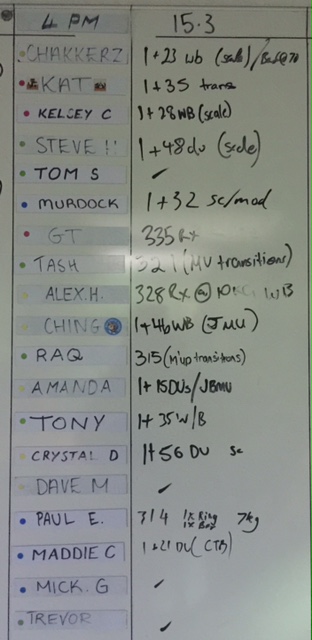 4 PM 15.3
CHAKKERZ 1+23 wb (scale) /
KAT 1+35 trans
KELSEY C 1+28WB (scale)
STEVE !! 1+48du (scale)
TOM S ✓
MURDOCK 1+32 sc/mod
GT 335 Rx
TASH 321 (MU transitions)
ALEX.H. 328 Rx @ 10KG WB
CHING 1+46WB (JMU)
RAQ 315 (M'up transitions)
AMANDA 1+15DUs/JBMU
TONY 1+35W/B
CRYSTAL D 1+56 DU sc
DAVE M ✓
PAUL E. 314 1x Ring 1x Bar 7kg
MADDIE C 1+21 DU (CTB)
MICK. G ✓
TREVOR ✓